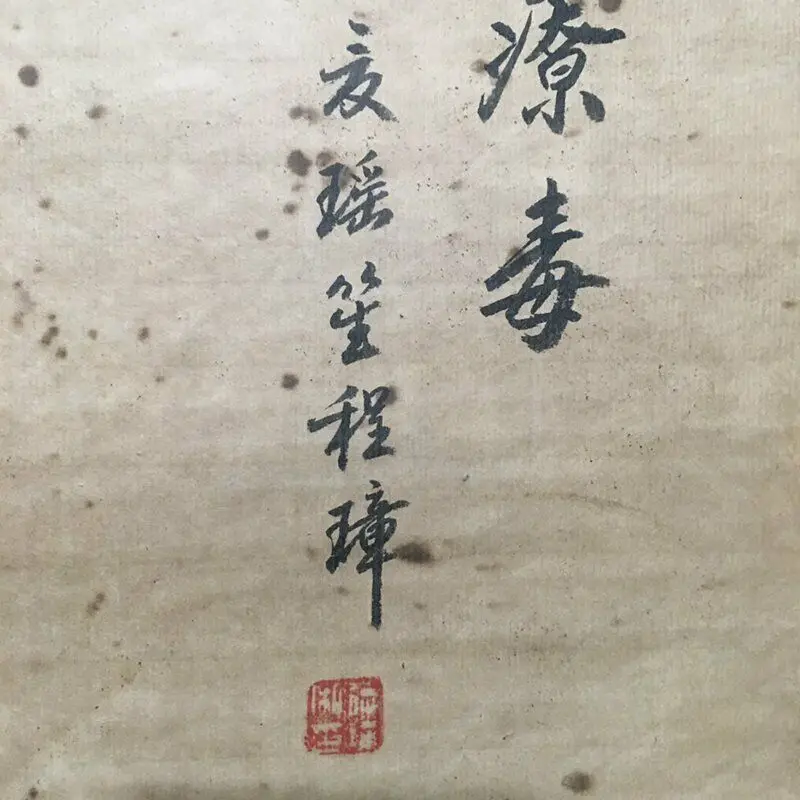 療毒
瑶笙程璋